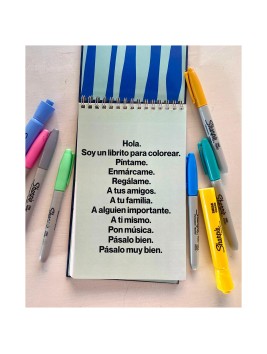 Hola.
Soy un librito para colorear.
Píntame.
Enmárcame.
Regálame.
A tus amigos.
A tu familia.
A alguien importante.
A ti mismo.
Pon música.
Pásalo bien.
Pásalo muy bien.
Sharpie
Sharpie
Sharpie
Sharpie
Sharpie
Sharpie